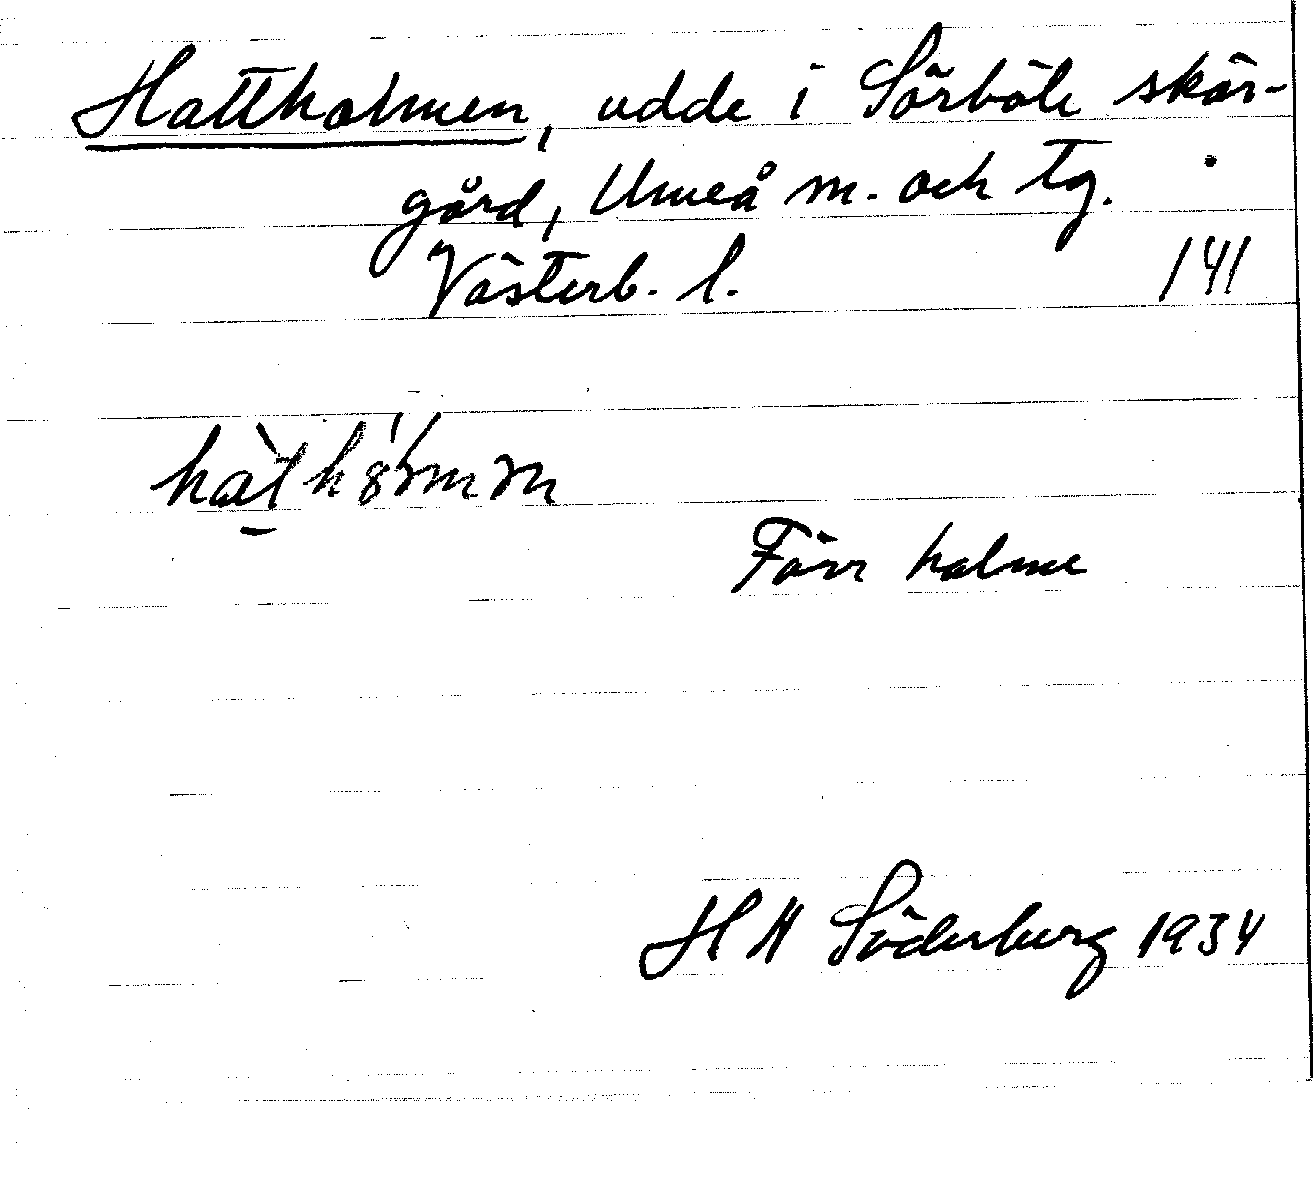 Hattholmen, udde i Sörböle skär-
gård, Umeå m. och tg.
Västerb. l. 141
Förr holme
H H Söderberg 1934